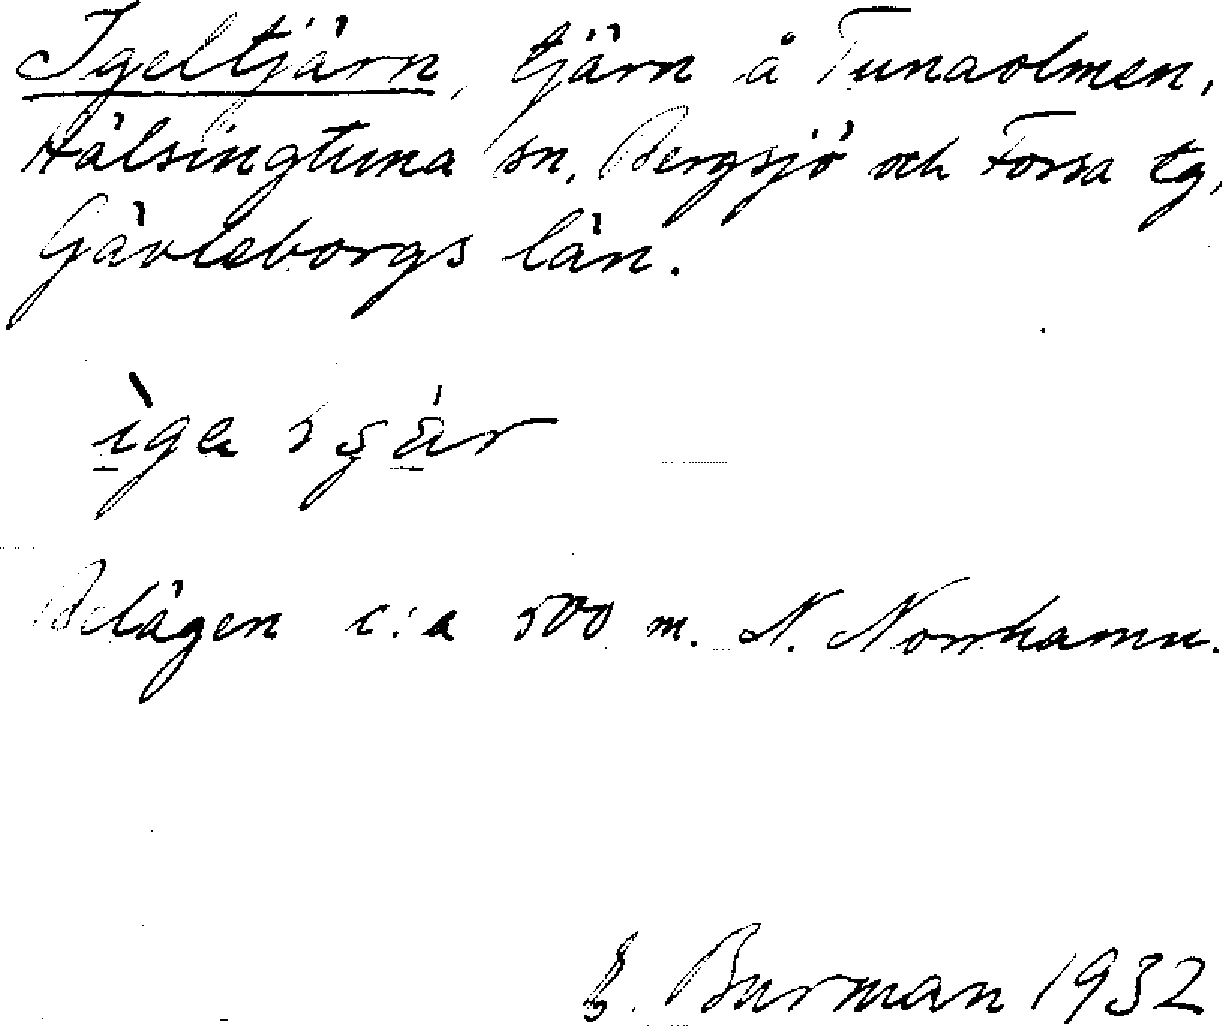 Igeltjärn, tjärn å Tunaolmen,
Hälsingtuna sn, Bergsjö och Forsa tg,
Gävleborgs län.
Belägen c:a 500 m. N. Norrhamn.
E. Burman 1932